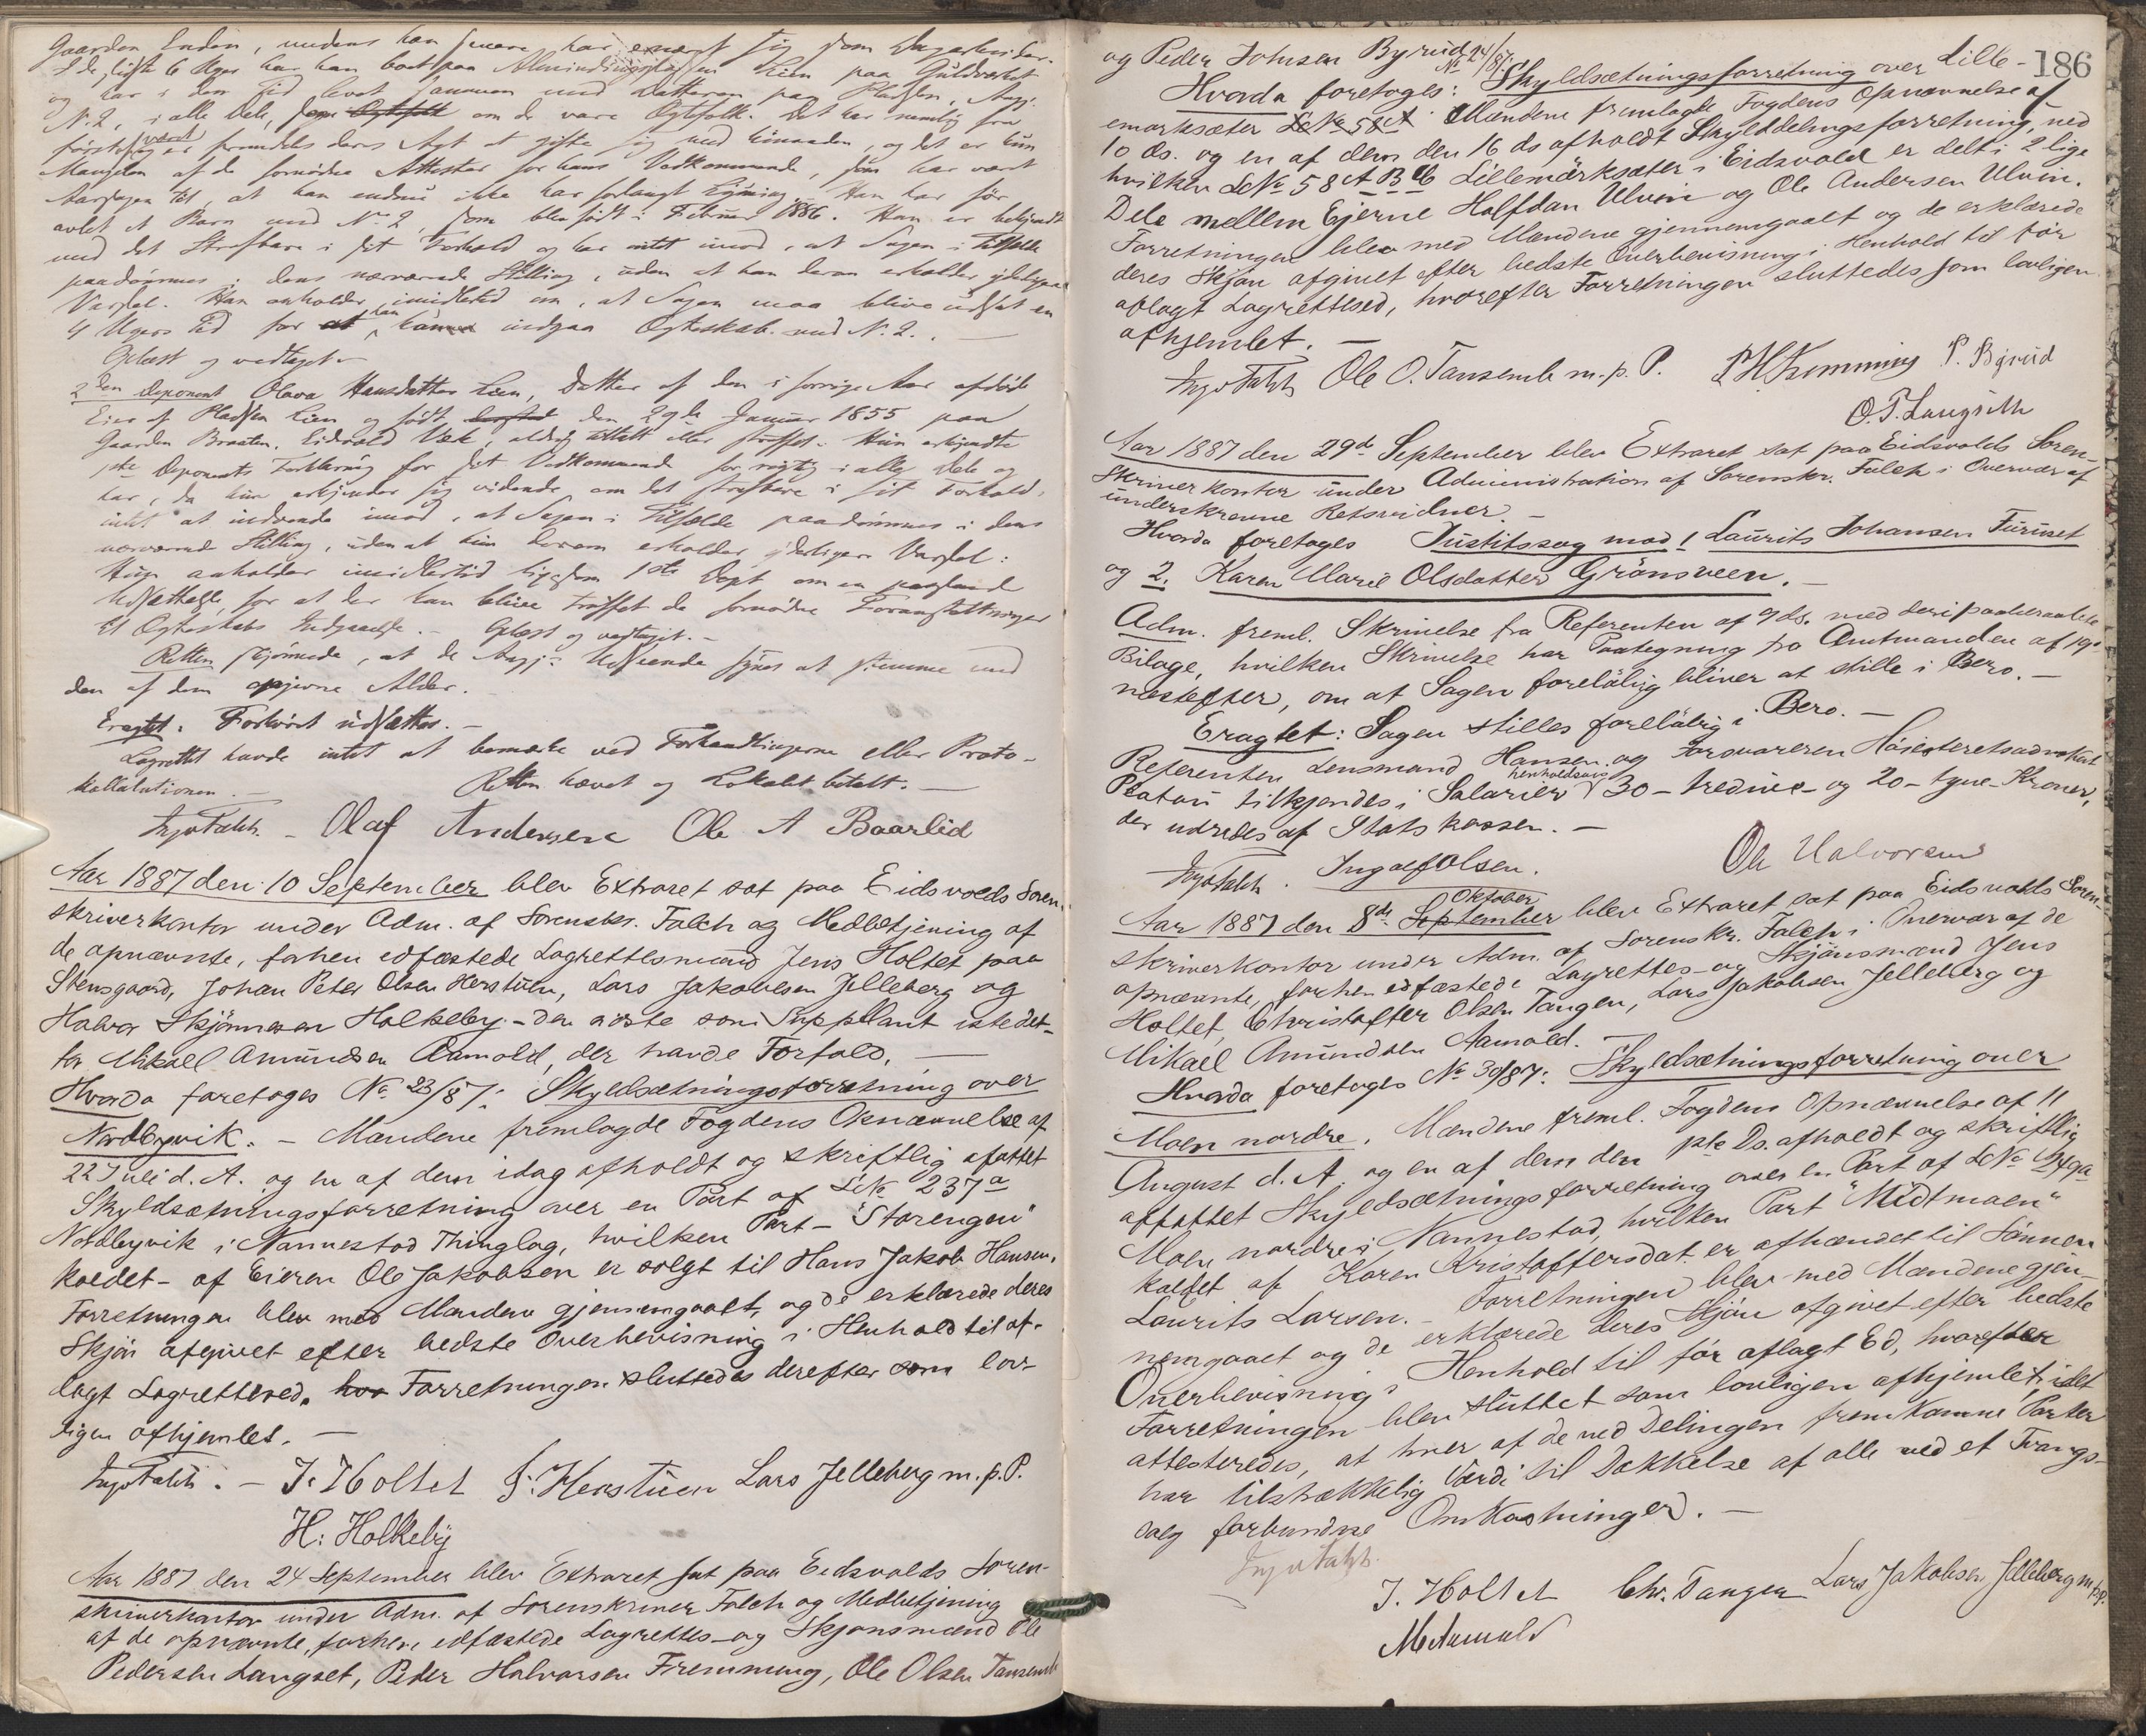 Gaarden Enden, medens han senere har ernæret sig som Dagarbeider.
I de sidste 6 Uger har han boet paa Almindingspladsen Lien paa Guldværket
og har i den Tid levet sammen med Datteren paa Pladsen, Ang.
N. 2, i alle Dele, som Ogtefolk om de vare Ogtefolk. Det har nemlig fra
først været fremdeles deres Agt at gifte sig med hinanden, og det er kun
Mangelen af de fornødne Attester for hans Vedkommende, som har været
Aarsagen til, at han endnu ikke har forlangt Lysning. Han har før
avlet et Barn med N. 2, som blev født i Februar 1886. Han er bekjendt
med det Strafbare i sit Forhold og har intet imod, at Sagen i Tilfælde
paadømmes i dens nærværende Stilling, uden at han derom erholder yderligere
Varsel. Han anholder imidlertid om, at Sagen maa blive udsat en
4 Ugers Tid for at kunne indgaa Ogteskab med N. 2. —
Oplæst og vedtaget —
2den Deponent Olava Hansdatter Lien, Datter af den i forrige Aar afdøde
Eier af Pladsen Lien og født den 29de Januar 1855 paa
Gaarden Braaten, Eidsvold Værk, aldrig tiltalt eller straffet. Hun erkjendte
1ste Deponents Forklaring for sit Vedkommende for rigtig i alle Dele og
har, da hun erkjender sig vidende om det strafbare i sit Forhold,
intet at indvende imod, at Sagen i Tilfælde paadømmes i dens
nærværende Stilling, uden at hun derom erholder yderligere Varsel:
Hun anholder imidlertid ligesom 1ste Dept om en passende
Udsættelse, for at der kan blive truffet de fornødne Foranstaltninger
til Ogteskabs Indgaaelse. — Oplæst og vedtaget. —
Retten skjønnede, at de Angj.s Udseende synes at stemme med
den af dem opgivne Alder.
Eragtet: Forhøret udsættes. —
Lagrettet havde intet at bemærke ved Forhandlingerne eller Proto-
kollationen. — Retten hævet og Lokalet betalt. —
Ingv Falch. — Olaf Andersen Ole A Baarlid
Aar 1887 den 10 September blev Extraret sat paa Eidsvolds Soren-
skriverkontor under Adm. af Sorenskr. Falch og Medbetjening af
de opnævnte, forhen edfæstede Lagrettesmænd Jens Holtet paa
Stensgaard, Johan Peter Olsen Herstuen, Lars Jakobsen Jelleberg og
Halvor Skjønnesen Holkeby – den sidste som Suppleant istedet-
for Mikael Amundsen Aamold, der havde Forfald. —
Hvorda foretoges No 23/87: Skyldsætningsforretning over
Nordbyvik. – Mændene fremlagde Fogdens Opnævnelse af
22 Juli d. A. og en af dem idag afholdt og skriftlig afattet
Skyldsætningsforretning over en Part af LNo 237a
Nordbyvik i Nannestad Thinglag, hvilken Part – "Storengen"
kaldet – af Eieren Ole Jakobsen er solgt til Hans Jakob Hansen.
Forretningen blev med Mændene gjennemgaaet, og de erklærede deres
Skjøn afgivet efter bedste Overbevisning i Henhold til af-
lagt Lagrettesed. hvo Forretningen sluttedes derefter som lov-
ligen afhjemlet. —
Ingv Falch. – J. Holtet J. Herstuen Lars Jelleberg m. p. P.
H: Holkeby
Aar 1887 den 24 September blev Extraret sat paa Eidsvolds Soren-
skriverkontor under Adm. af Sorenskriver Falch og Medbetjening
af de opnævnte, forhen edfæstede Lagrettes- og Skjønsmænd Ole
Pedersen Langset, Peder Halvorsen Fremming, Ole Olsen Tansemb
186
og Peder Johnsen Byrud.
Hvorda foretoges: No 24/87: Skyldsætningsforretning over Lille-
emarksæter LNo 58 A. Mændene fremlagde Fogdens Opnævnelse af
10 ds. og en af dem den 16 ds afholdt Skylddelingsforretning, ved
hvilken LNo 58 A B Lillemarksæter i Eidsvold er delt i 2 lige
Dele mellem Ejerne Halfdan Ulvin og Ole Andersen Ulvin.
Forretningen blev med Mændene gjennemgaaet og de erklærede
deres Skjøn afgivet efter bedste Overbevisning i Henhold til før
aflagt Lagrettesed, hvorefter Forretningen sluttedes som lovligen
afhjemlet. —
Ingv Falch Ole O. Tansemb m. p. P. P H Fremming P. Byrud
O. P. Langseth
Aar 1887 den 29de September blev Extraret sat paa Eidsvolds Soren-
skriverkontor under Administration af Sorenskr. Falch i Overvær af
underskrevne Retsvidner. —
Hvorda foretoges Justitssag mod 1 Laurits Johansen Furuset
og 2. Karen Marie Olsdatter Grønsveen. —
Adm. freml. Skrivelse fra Referenten af 9 ds. med deri paaberaabte
Bilage, hvilken Skrivelse har Paategning fra Amtmanden af 19de
næstefter, om at Sagen foreløbig bliver at stille i Bero. —
Eragtet: Sagen stilles foreløbig i Bero. —
Referenten Lensmand Hansen og Forsvareren Høiesteretsadvokat
Platou tilkjendes i Salarier henholdsvis 30 – tredive – og 20 – tyve – Kroner,
der udredes af Statskassen. —
Ingv Falch. Ingolf Olsen. Ole Halvorsen
Aar 1887 den 8de September Oktober blev Extraret sat paa Eidsvolds Soren-
skriverkontor under Adm. af Sorenskr. Falch i Overvær af de
opnævnte, forhen edfæstede Lagrettes- og Skjønsmænd Jens
Holtet, Christoffer Olsen Tangen, Lars Jakobsen Jelleberg og
Mikael Amundsen Aamold. —
Hvorda foretoges No 30/87: Skyldsætningsforretning over
Moen nordre. Mændene freml. Fogdens Opnævnelse af 11
August d. A. og en af dem den 1ste Ds. afholdt og skriftlig
affattet Skyldsætningsforretning over en Part af LNo
Moen nordre i Nannestad, hvilken Part "Midtmoen"
kaldet af Karen Kristoffersdat. er afhændet til Sønnen
Laurits Larsen. – Forretningen blev med Mændene gjen-
nemgaaet og de erklærede deres Skjøn afgivet efter bedste
Overbevisning i Henhold til før aflagt Ed, hvorefter
Forretningen blev sluttet som lovligen afhjemlet, idet
attesteredes, at hver af de ved Delingen fremkomne Parter
har tilstrækkelig Værdi til Dækkelse af alle ved et Tvangs-
salg forbundne Omkostninger. —
Ingv Falch.
J. Holtet Chr. Tangen Lars Jakobsen Jelleberg m. p. p.
M Aamold